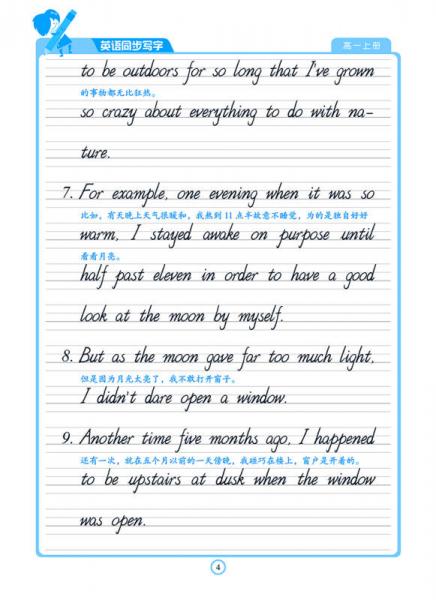 英语同步写字
高一上册
to be outdoors for so long that I've grown
的事物都无比狂热。
so crazy about everything to do with na-
ture.
7. For example, one evening when it was so
比如，有天晚上天气很暖和，我熬到 11 点半故意不睡觉，为的是独自好好
warm, I stayed awake on purpose until
看看月亮。
half past eleven in order to have a good
look at the moon by myself.
8. But as the moon gave far too much light,
但是因为月光太亮了，我不敢打开窗子。
I didn't dare open a window.
9. Another time five months ago, I happened
还有一次，就在五个月以前的一天傍晚，我碰巧在楼上，窗户是开着的。
to be upstairs at dusk when the window
was open.
4